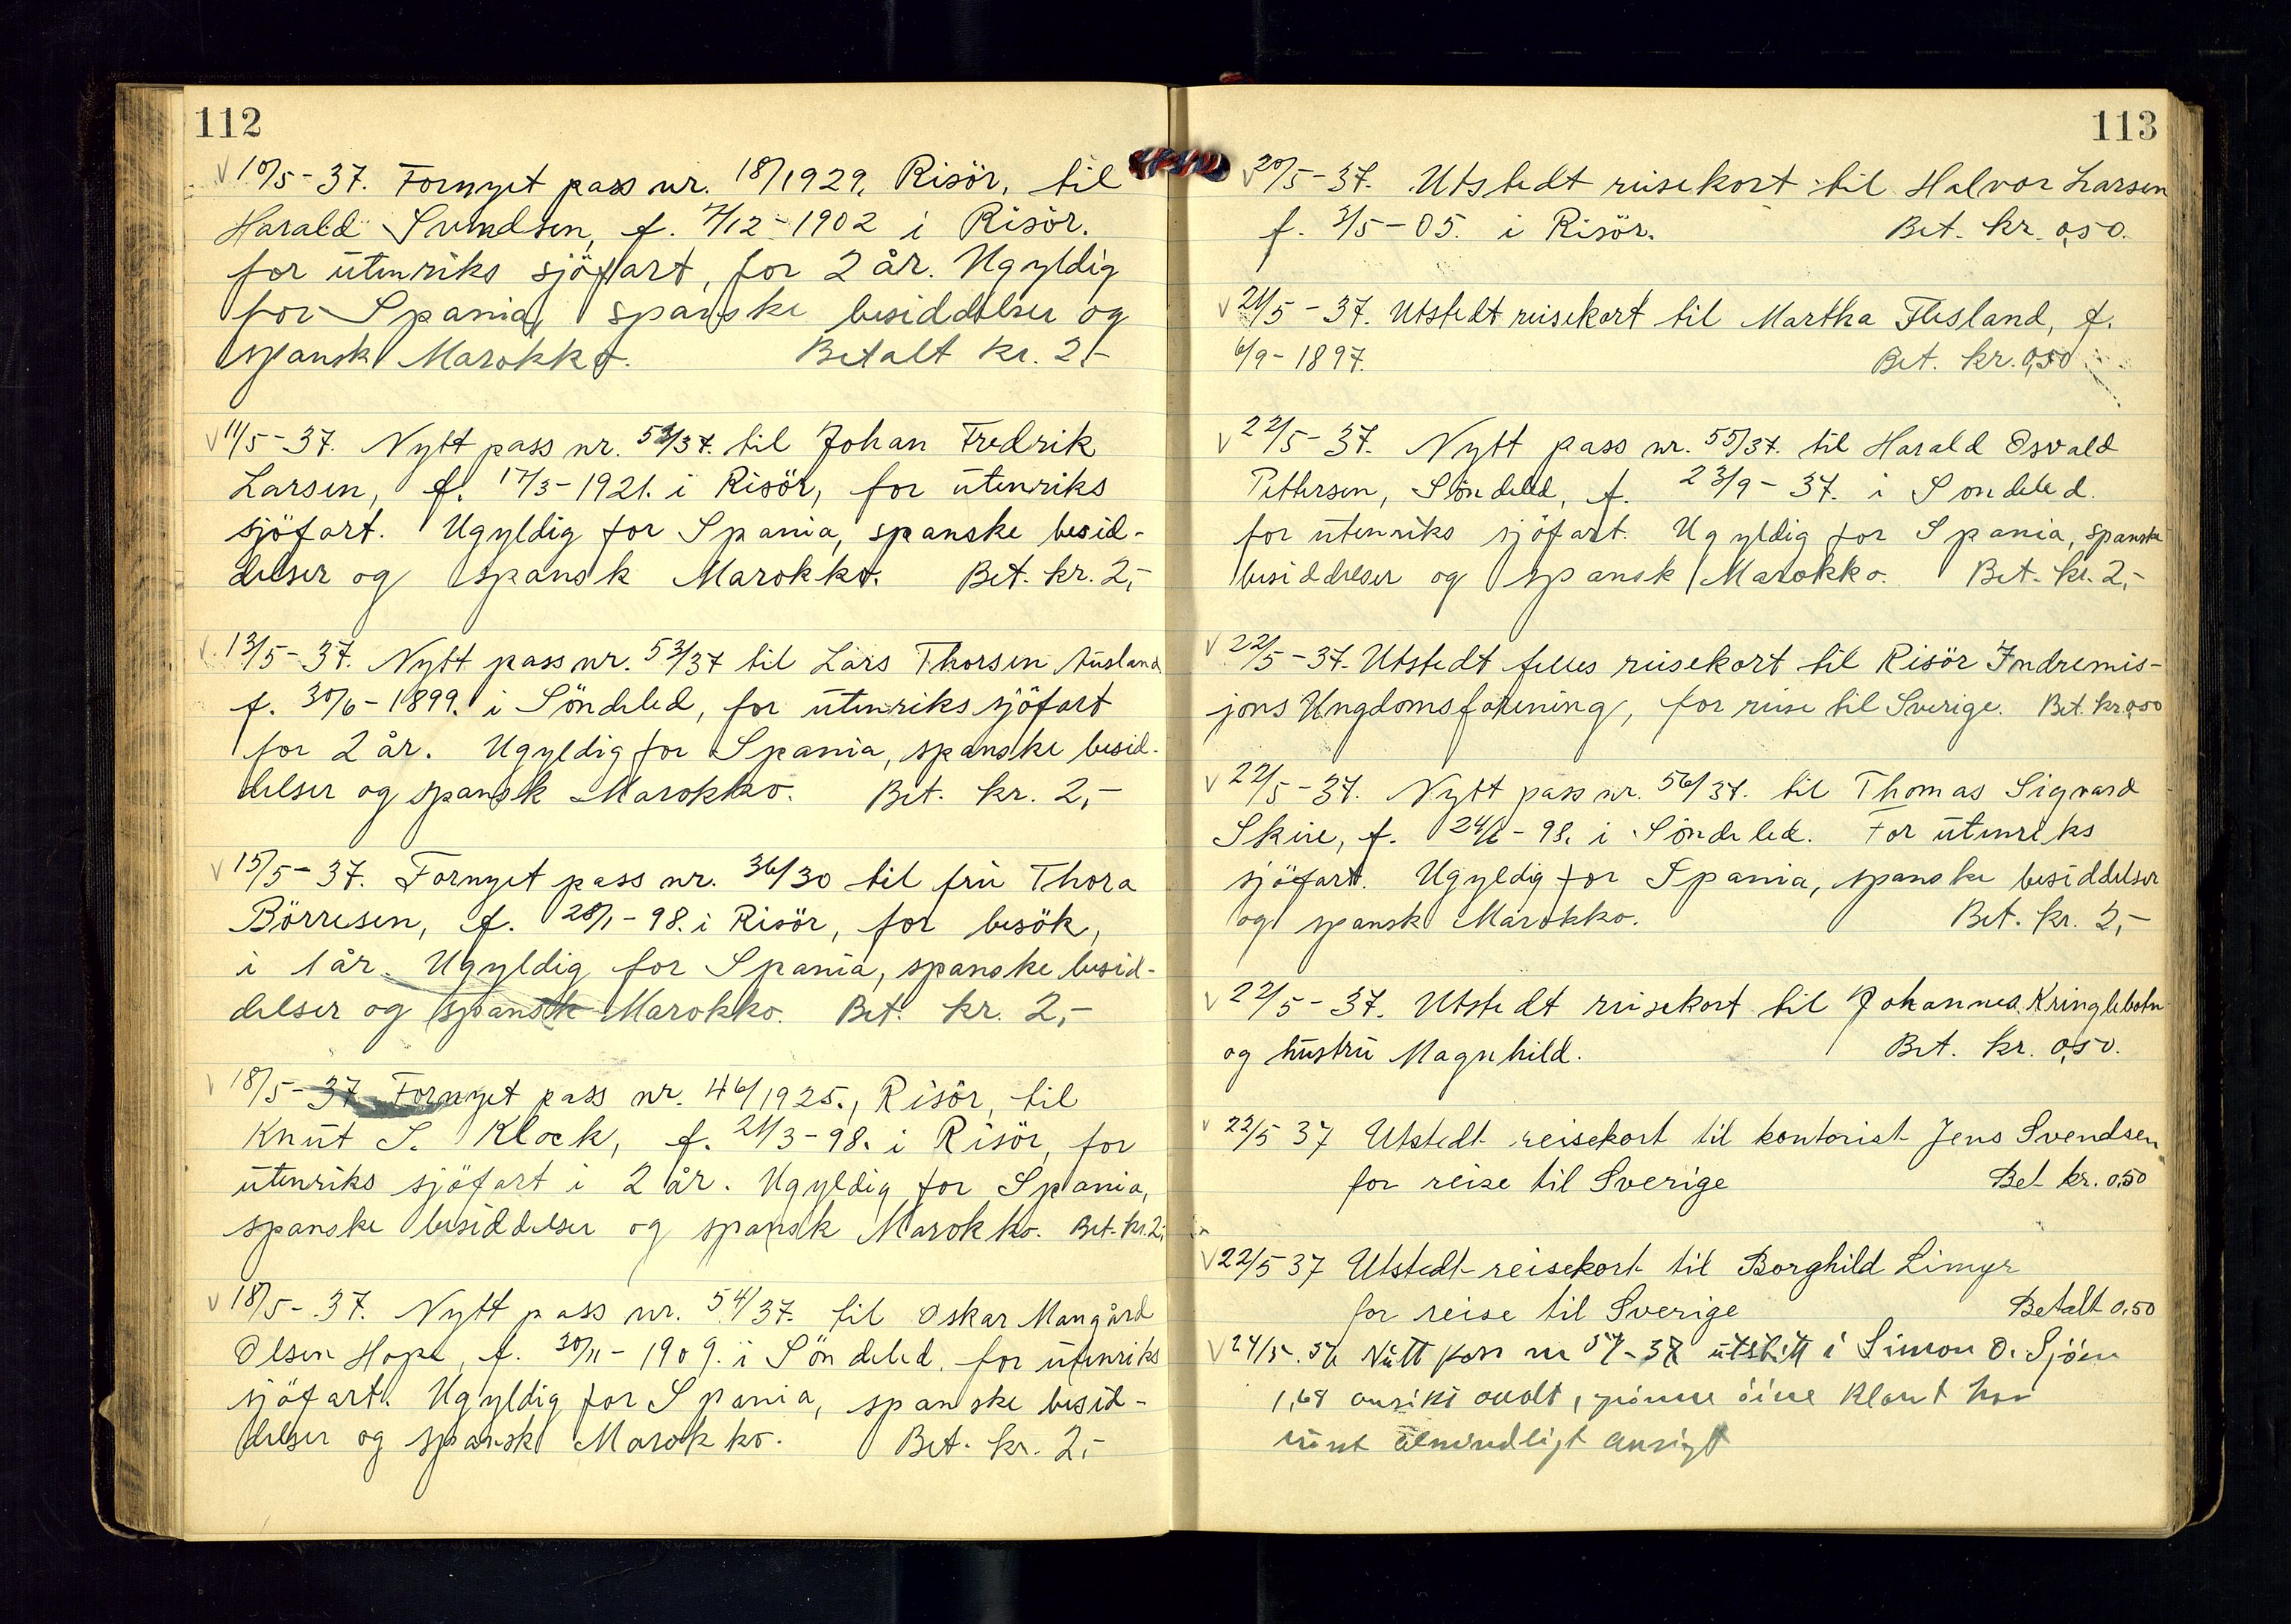 112
√ 10/5-37. Fornyet pass nr. 18/1929, Risör, til
Harald Svendsen, f. 7/12-1902 i Risör.
for utenriks sjöfart, for 2 år. Ugyldig
for Spania, spanske besiddelser og
spansk Marokko. Betalt kr. 2,-
√ 11/5-37. Nytt pass nr. 52/37. til Johan Fredrik
Larsen, f. 17/3-1921. i Risör, for utenriks
sjöfart. Ugyldig for Spania, spanske besid-
delser og spansk Marokko. Bet. kr. 2,-
√ 13/5-37. Nytt pass nr. 53/37 til Lars Thorsen Ausland
f. 30/6-1899. i Söndeled, for utenriks sjöfart
for 2 år. Ugyldig for Spania, spanske besid-
delser og spansk Marokko. Bet. kr. 2,-
√ 15/5-37. Fornyet pass nr. 36/30 til fru Thora
Börresen, f. 28/1-98. i Risör, for besök,
i 1 år. Ugyldig for Spania, spanske besid-
delser og spansk Marokko. Bet. kr. 2,-
√ 18/5-37 Fornyet pass nr. 46/1925., Risör, til
Knut S. Klock, f. 21/3-98. i Risör, for
utenriks sjöfart i 2 år. Ugyldig for Spania,
spanske besiddelser og spansk Marokko. Bet. kr. 2,-
√ 18/5-37. Nytt pass nr. 54/37. til Oskar Mangård
Olsen Hope, f. 30/11-1909. i Söndeled, for utenriks
sjöfart. Ugyldig for Spania, spanske besid-
delser og spansk Marokko. Bet. kr. 2,-
113
√ 20/5-37. Utstedt reisekort til Halvor Larsen
f. 3/5-05. i Risör. Bet. kr. 0,50.
√ 21/5-37. Utstedt reisekort til Martha Flesland, f.
6/9-1897. Bet. kr. 0,50
√ 22/5-37. Nytt pass nr. 55/37. til Harald Osvald
Pettersen, Söndeled, f. 23/9-37. i Sondeled.
for utenriks sjöfart. Ugyldig for Spania, spanske
besiddelser og spansk Marokko. Bet. kr. 2,-
√ 22/5-37. Utstedt felles reisekort til Risör Indremis-
jons Ungdomsforening, for reise til Sverige. Bet. kr. 0,50
√ 22/5-37. Nytt pass nr. 56/37. til Thomas Sigvard
Skire, f. 24/6-98. i Söndeled. For utenriks
sjöfart. Ugyldig for Spania, spanske besiddelser
og spansk Marokko. Bet. kr. 2,-
√ 22/5-37. Utstedt reisekort til Johannes Kringlebotn
og hustru Magnhild. Bet. kr. 0,50.
√ 22/5 37 Utstedt reisekort til kontorist Jens Svendsen
for reise til Sverige Bet kr. 0,50
√ 22/5 37 Utstedt reisekort til Borghild Limyr
for reise til Sverige Betalt 0,50
√ 24/5. 37 Nutt pass nr 57-37 utstett i Simon O.
1,68 ansikt ovalt, öine Blont hor
almindligt ansigt